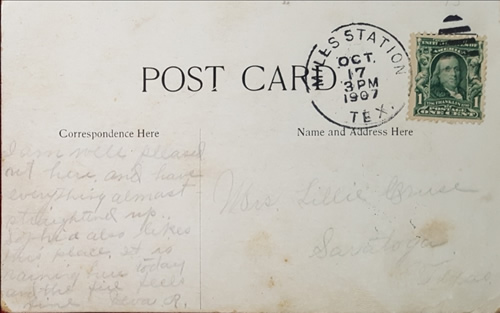 MILES STATION
OCT.
17
3 PM
1907
TEX.
POST CARD.
1
1
POSTAGE
ONE CENT
Correspondence Here
Name and Address Here
I am well pleased
out here, and have
everything almost
straightend up.
also likes
this place. It is
raining here today
and the fire feels
fine.
Mrs. Lillie
Saratoga
Texas